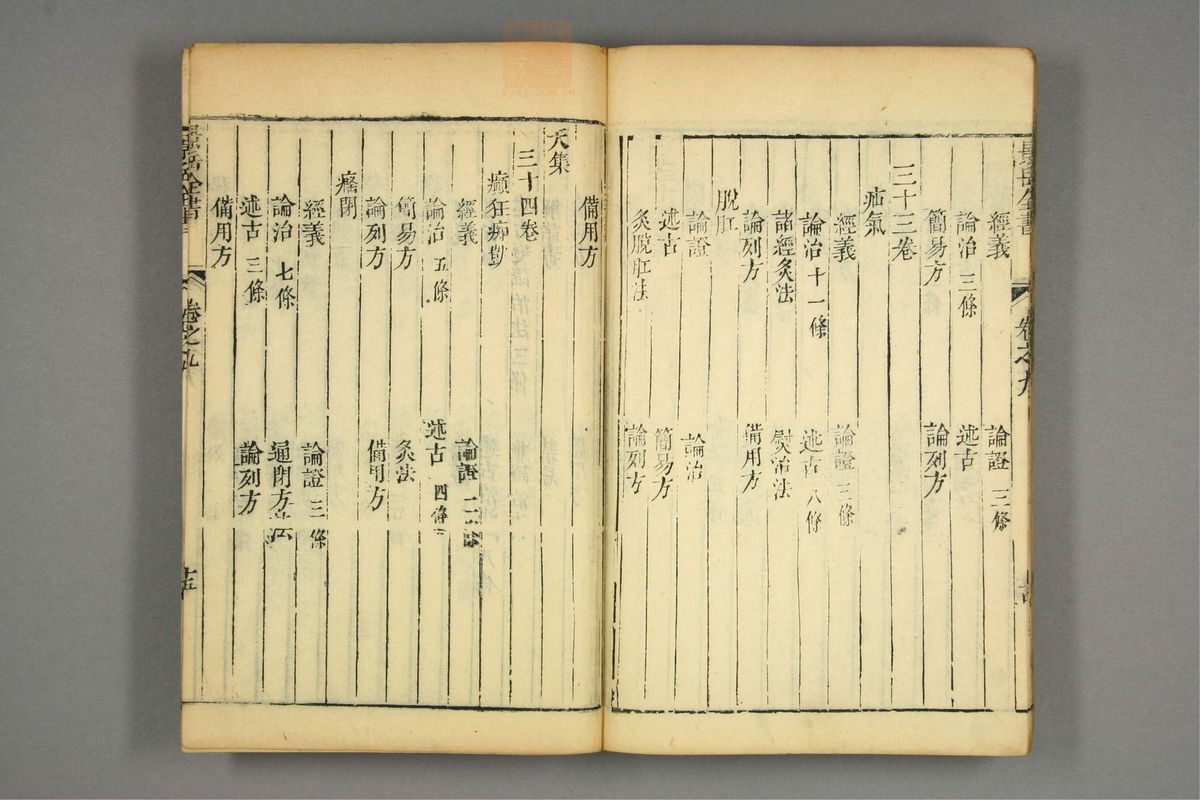 經義　論證 三條
論治 三條　述古
簡易方　論列方
三十三卷
疝氣
經義　論證 三條
論治 十一條　述古 八條
諸經灸法　熨治法
論列方　備用方
脫肛
論證　論治
述古　簡易方
灸脫肛法　論列方
備用方
天集
三十四卷
癲狂痴獃
經義　論證 二條
論治 五條　述古 四條
簡易方　灸法
論列方　備用方
癃閉
經義　論證 三條
論治 七條　通閉方法
述古 三條　論列方
備用方
景岳全書　卷之九　十五